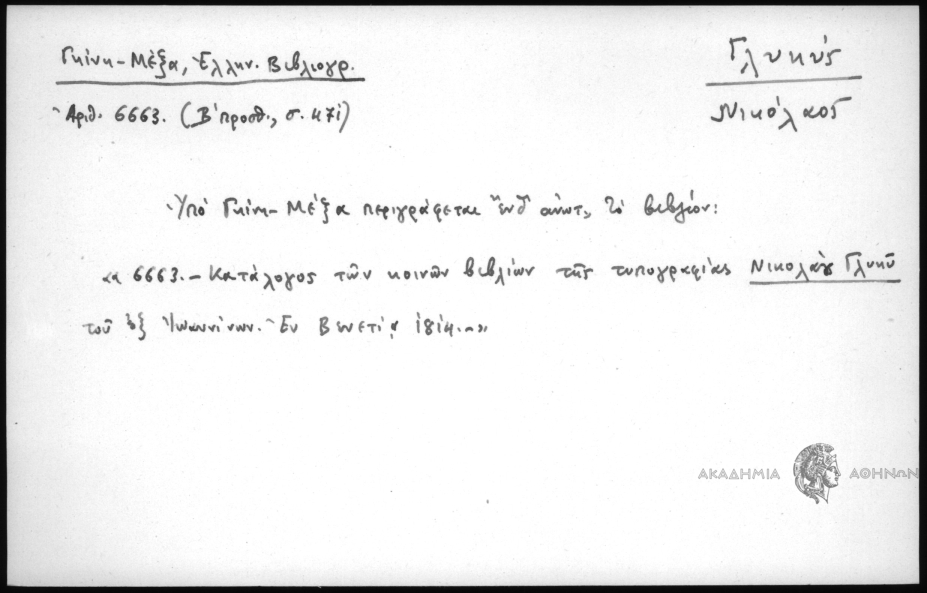 Γκίνη-Μέξα, Ἑλλην. Βιβλιογρ.
Γλυκύς
Νικόλαος
Ἀριθ. 6663. (Β' προσθ., σ. 471)
Ὑπό Γκίνη-Μέξα περιγράφεται "ἐνθ' ἀνωτ., τό βιβλίον:
«6663.- Κατάλογος τῶν κοινῶν βιβλίων τῆς τυπογραφίας Νικολάου Γλυκύ
τοῦ ἐξ Ἰωαννίνων. Ἐν Βενετίᾳ
ΑΚΑΔΗΜΙΑ ΑΘΗΝΩΝ